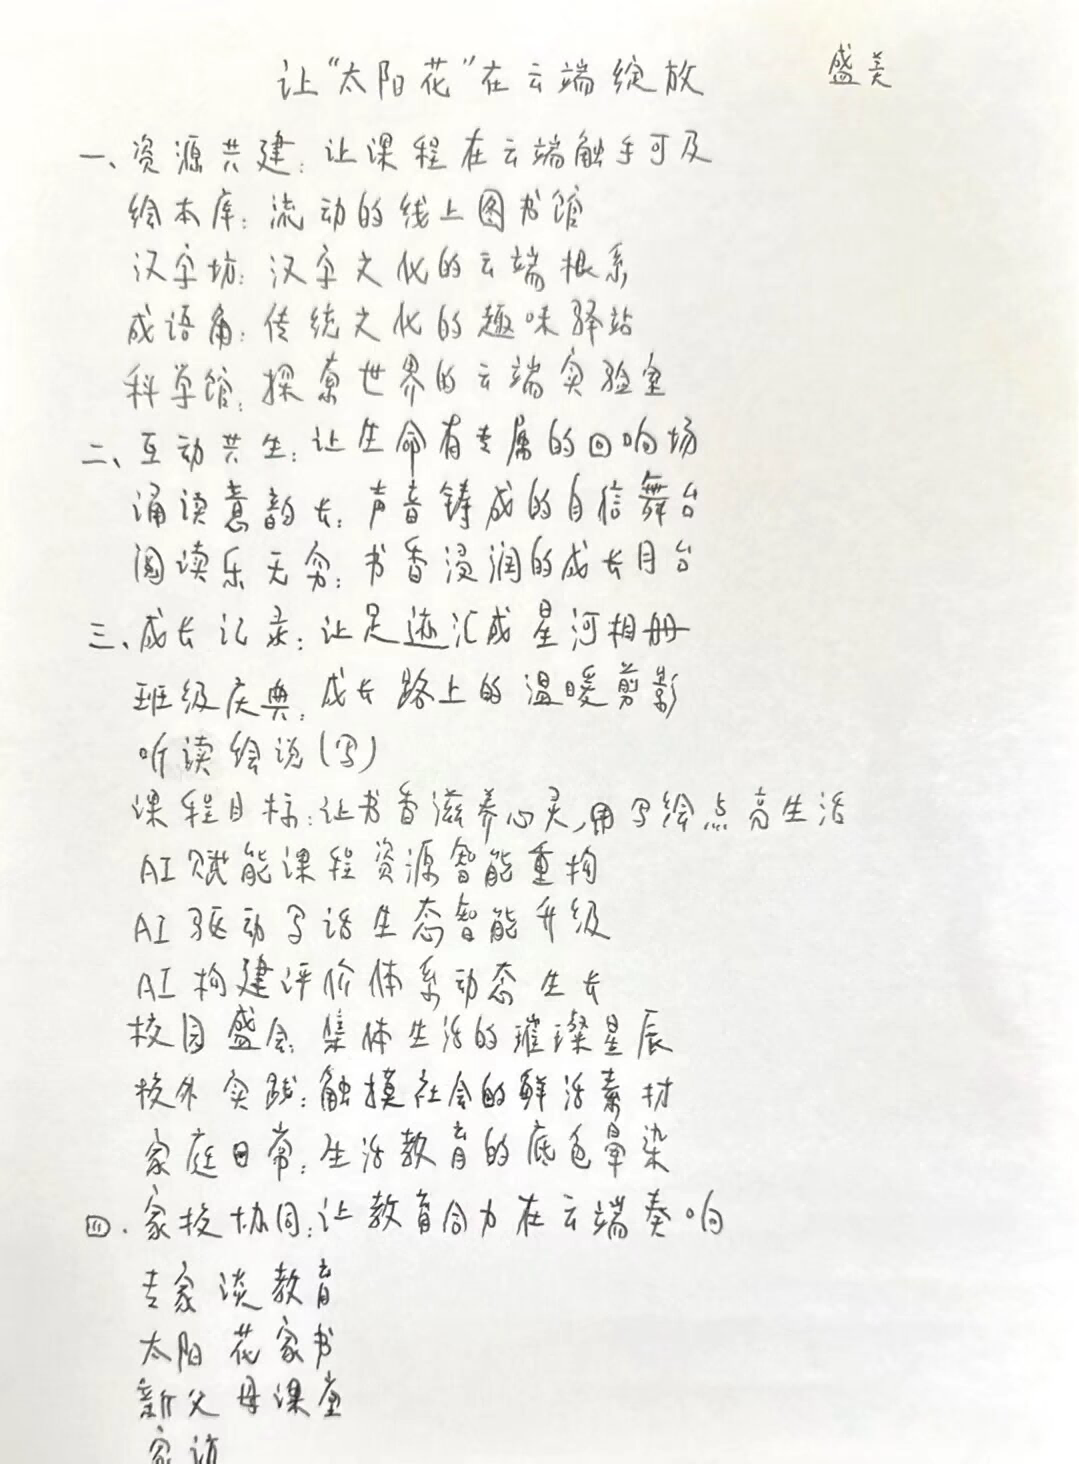 让“太阳花”在云端绽放 盛美
一、资源共建:让课程在云端触手可及
绘本库:流动的线上图书馆
汉字坊:汉字文化的云端根系
成语角:传统文化的趣味驿站
科学馆:探索世界的云端实验室
二、互动共生:让生命有专属的回响场
诵读意韵长:声音铸成的自信舞台
阅读乐无穷:书香浸润的成长月台
三、成长记录:让足迹汇成星河相册
班级庆典:成长路上的温暖剪影
听读绘说(写)
课程目标:让书香滋养心灵,用写绘点亮生活
AI赋能课程资源智能重构
AI驱动写话生态智能升级
AI构建评价体系动态生长
校园盛会:集体生活的璀璨星辰
校外实践:触摸社会的鲜活素材
家庭日常:生活教育的底色晕染
四.家校协同:让教育合力在云端奏响
专家谈教育
太阳花家书
新父母课堂
家访